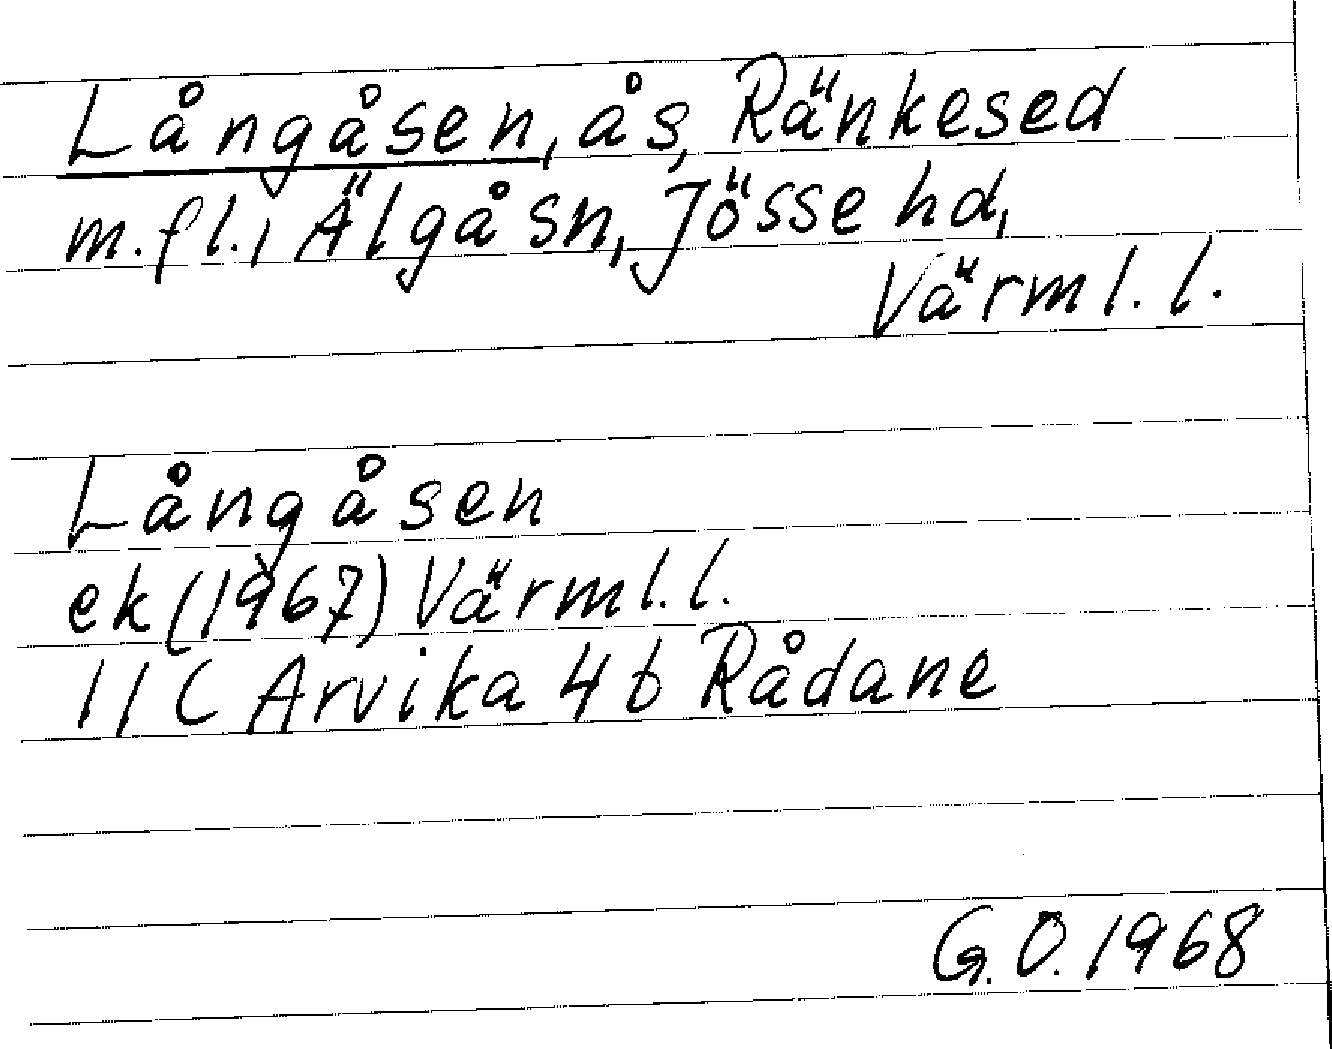 Långåsen, ås, Ränkesed
m.fl., Älgåsn, Jösse hd,
Värml. l.
Långåsen
ek (1967) Värml. l.
11 C Arvika 4 b Rådane
G. O. 1968